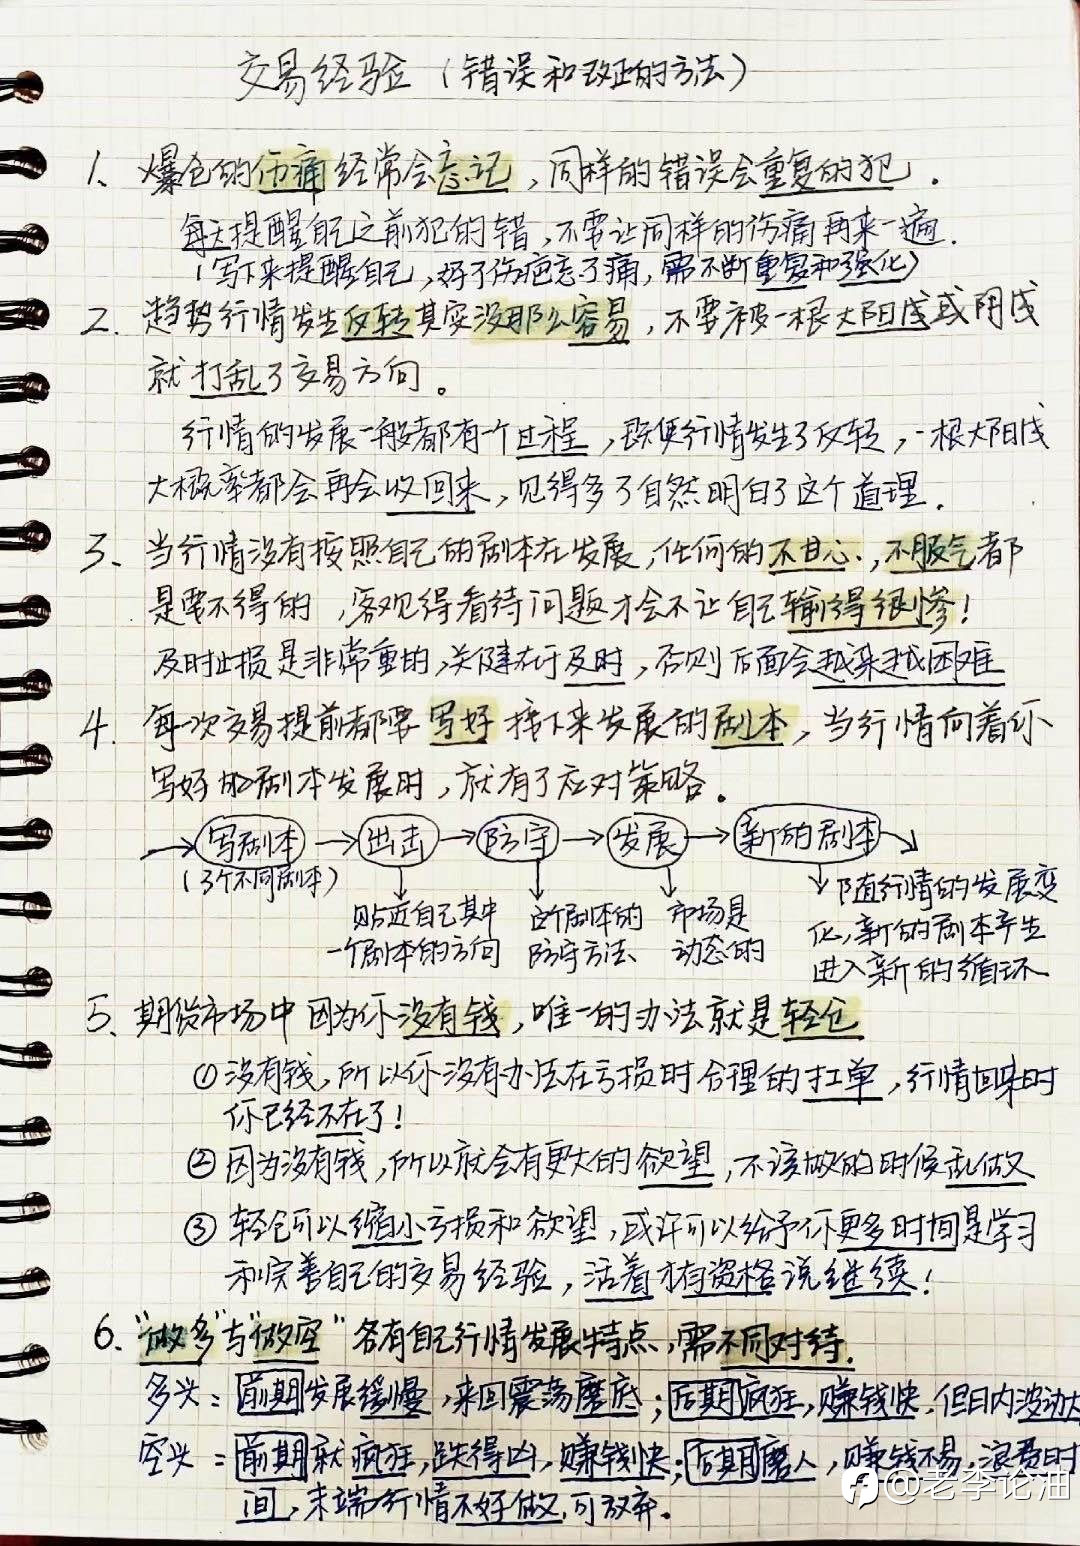 交易经验（错误和改正的方法）
1、爆仓的伤痛经常会忘记，同样的错误会重复的犯．
每天提醒自己之前犯的错，不要让同样的伤痛再来一遍．
（写下来提醒自己，好了伤疤忘了痛，需不断重复和强化）
2、趋势行情发生反转其实没那么容易，不要被一根大阳线或阴线
就打乱了交易方向。
行情的发展一般都有一个过程，既便行情发生了反转，一根大阳线
大概率都会再会收回来，见得多了自然明白了这个道理．
3、当行情没有按照自己的剧本在发展，任何的不甘心，不服气都
是要不得的，客观得看待问题才会不让自己输得很惨！
及时止损是非常重的，关键在于及时，否则后面会越来越困难
4、每次交易提前都要写好接下来发展的剧本，当行情向着你
写好的剧本发展时，就有了应对策略。
→写剧本→出击→防守→发展→新的剧本
（3个不同剧本）
贴近自己其中
一个剧本的方向
这个剧本的
防守方法
市场是
动态的
随行情的发展变
化，新的剧本产生
进入新的循环
5、期货市场中因为你没有钱，唯一的办法就是轻仓
①没有钱，所以你没有办法在亏损时合理的扛单，行情回来时
你已经不在了！
②因为没有钱，所以就会有更大的欲望，不该做的时候乱做
③轻仓可以缩小亏损和欲望，或许可以给予你更多时间是学习
和完善自己的交易经验，活着才有资格说继续！
6、“做多”与“做空”各有自己行情发展特点，需不同对待．
多头：前期发展缓慢，来回震荡磨底；后期疯狂，赚钱快，但日内波动大
空头：前期就疯狂，跌得凶，赚钱快；后期磨人，赚钱不易，浪费时
间，末端行情不好做，可放弃．
@老李论油